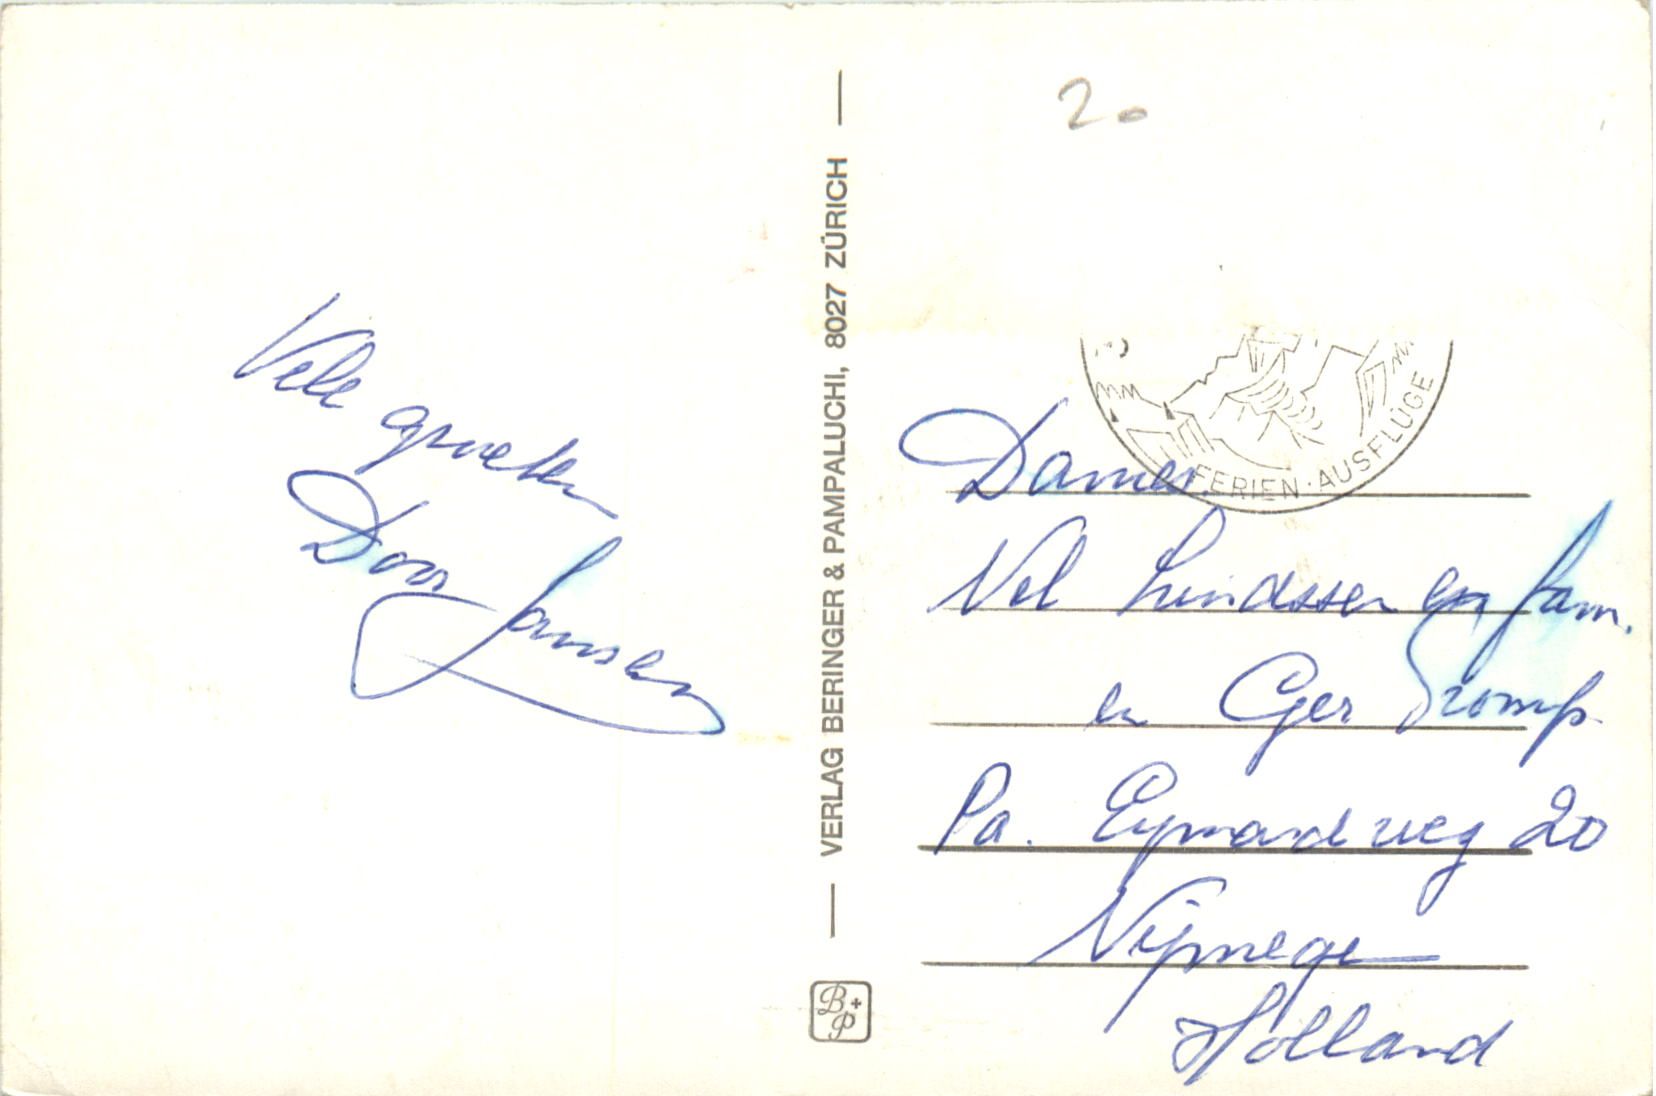 20
Vele groeten
Door Jansen
VERLAG BERINGER & PAMPALUCHI, 8027 ZÜRICH
B+P
FERIEN · AUSFLÜGE
Dames.
Nel Lindssen en fam.
en Ger Tromp
Pa. Eymardweg 20
Nijmegen
Holland